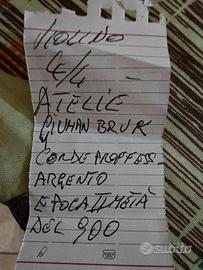 VIOLINO
4/4 -
ATELIE
CORDE PROFFESS
ARGENTO
EPOCA II METÀ
DEL 900
subito